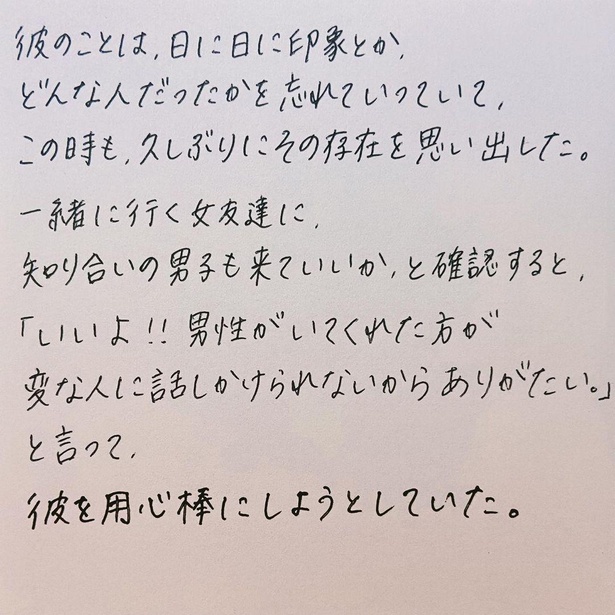 彼のことは、日に日に印象とか、
どんな人だったかを忘れていっていて、
この時も、久しぶりにその存在を思い出した。
一緒に行く女友達に、
知り合いの男子も来ていいか、と確認すると、
「いいよ!!男性がいてくれた方が
変な人に話しかけられないからありがたい。」
と言って、
彼を用心棒にしようとしていた。